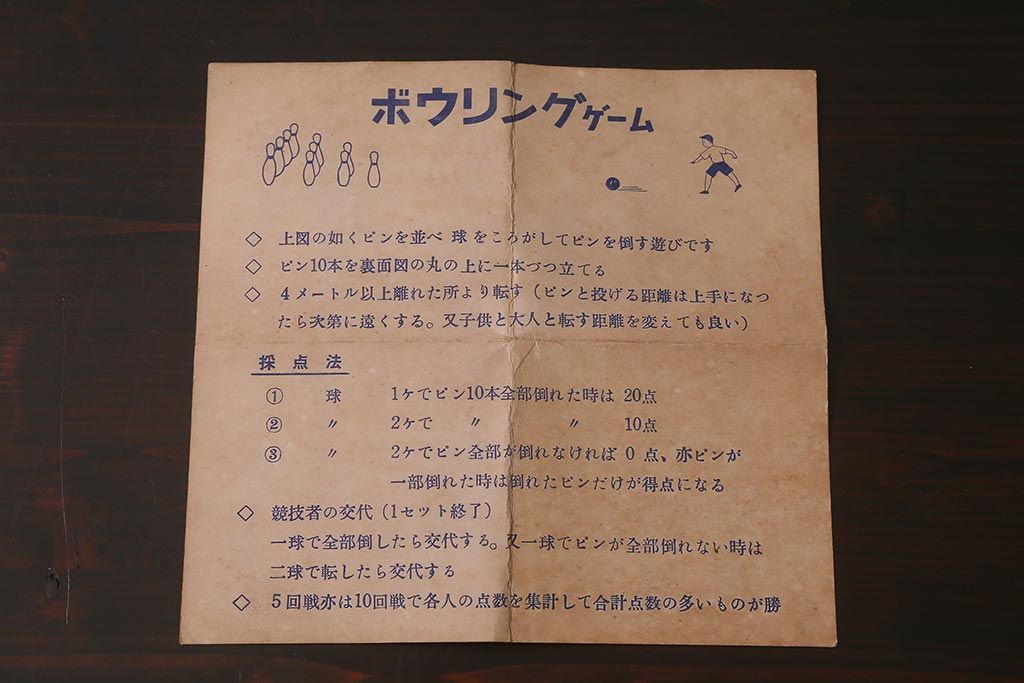 ボウリングゲーム
◇ 上図の如くピンを並べ 球をころがしてピンを倒す遊びです
◇ ピン10本を裏面図の丸の上に一本づつ立てる
◇ 4メートル以上離れた所より転す(ピンと投げる距離は上手になつ
たら次第に遠くする。又子供と大人と転す距離を変えても良い)
採点法
① 球 1ケでピン10本全部倒れた時は 20点
② 〃 2ケで 〃 〃 10点
③ 〃 2ケでピン全部が倒れなければ 0 点、亦ピンが
一部倒れた時は倒れたピンだけが得点になる
◇ 競技者の交代(1セット終了)
一球で全部倒したら交代する。又一球でピンが全部倒れない時は
二球で転したら交代する
◇ 5回戦亦は10回戦で各人の点数を集計して合計点数の多いものが勝